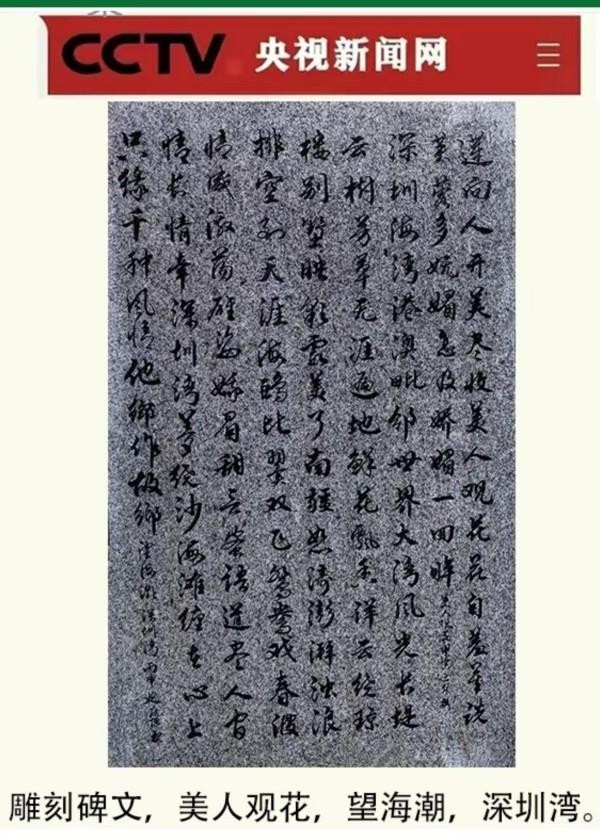 CCTV 央视新闻网
莲向人开美尽收美人观花花自羞莫说
芙蓉多妩媚怎及娇媚一回眸
深圳海湾港澳毗邻世界大湾风光长堤
云树芳草无涯遍地鲜花飘香洋云绕琼
楼别墅映彩霞美了南疆怒涛澎湃浊浪
排空到天涯海鸥比翼双飞鸳鸯戏春
情感激荡蛾眉甜言蜜语道尽人间
情长情牵深圳湾梦绕沙海滩缠在心上
只缘千种风情他乡作故乡 望海潮 深圳湾
雕刻碑文，美人观花，望海潮，深圳湾。